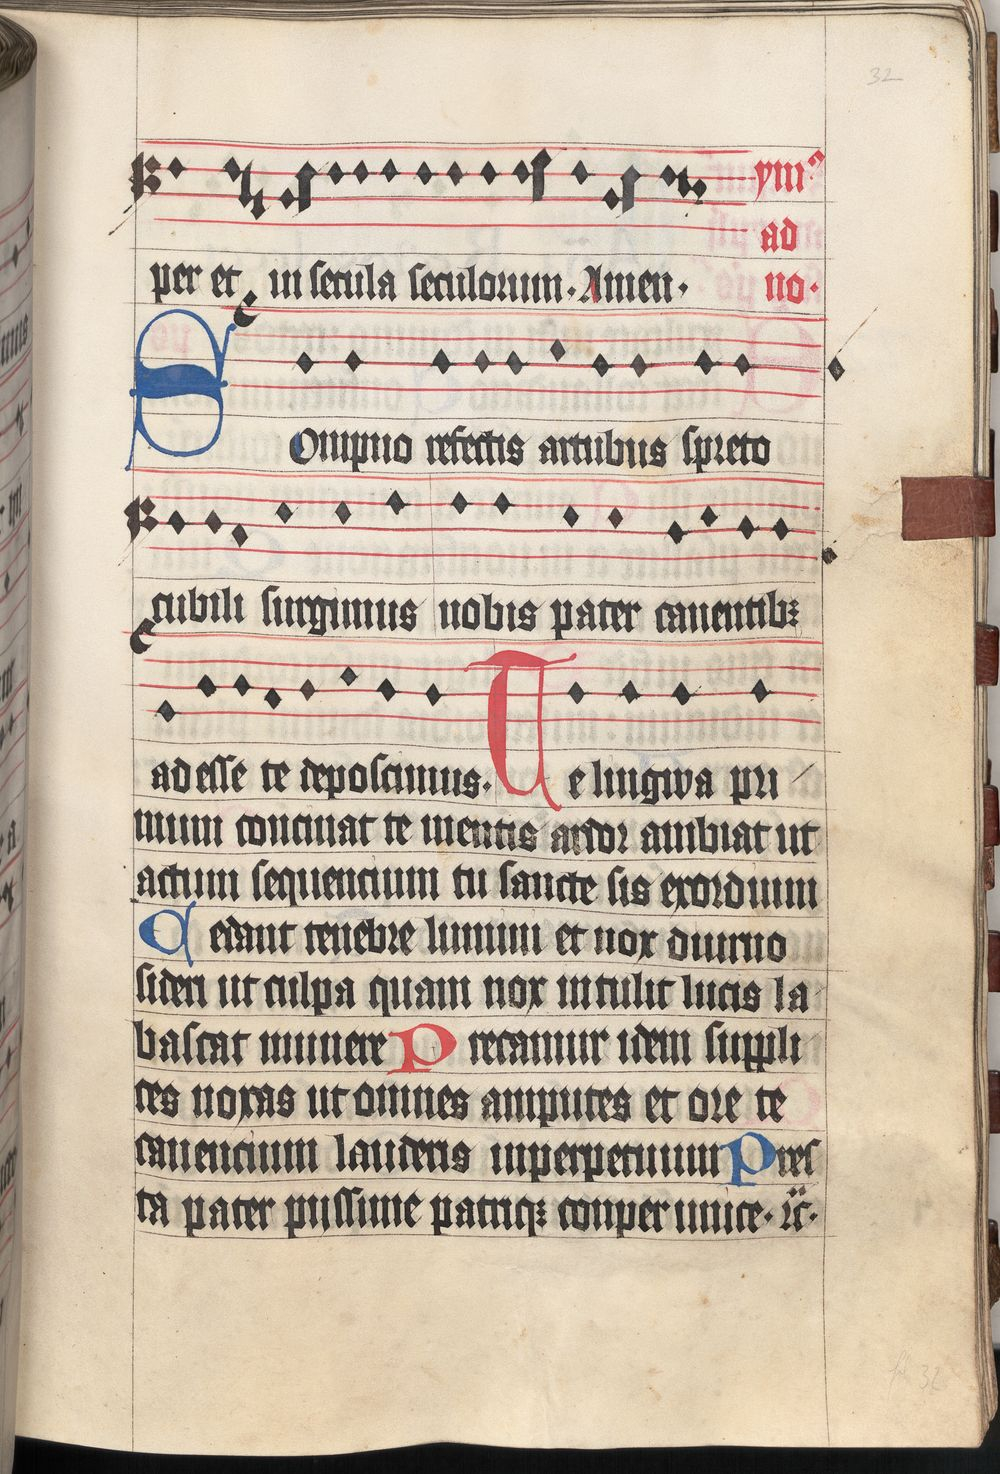 32
ymꝰ
ad
per et in secula seculorum. Amen. no.
Sompno refectis artubus spreto
cubili surgimus nobis pater canentibꝫ
adesse te deposcimus. Te lingwa pri
mum concinat te mentis ardor ambiat ut
actuum sequencium tu sancte sis exordium
Cedant tenebre lumini et nox diurno
sideri ut culpa quam nox intulit lucis la
bascat munere Precamur idem suppli
ces noxas ut omnes amputes et ore te
canencium lauderis inperpetuum Pres
ta pater piissime patriqꝫ conpar unice. ꝛc.
32